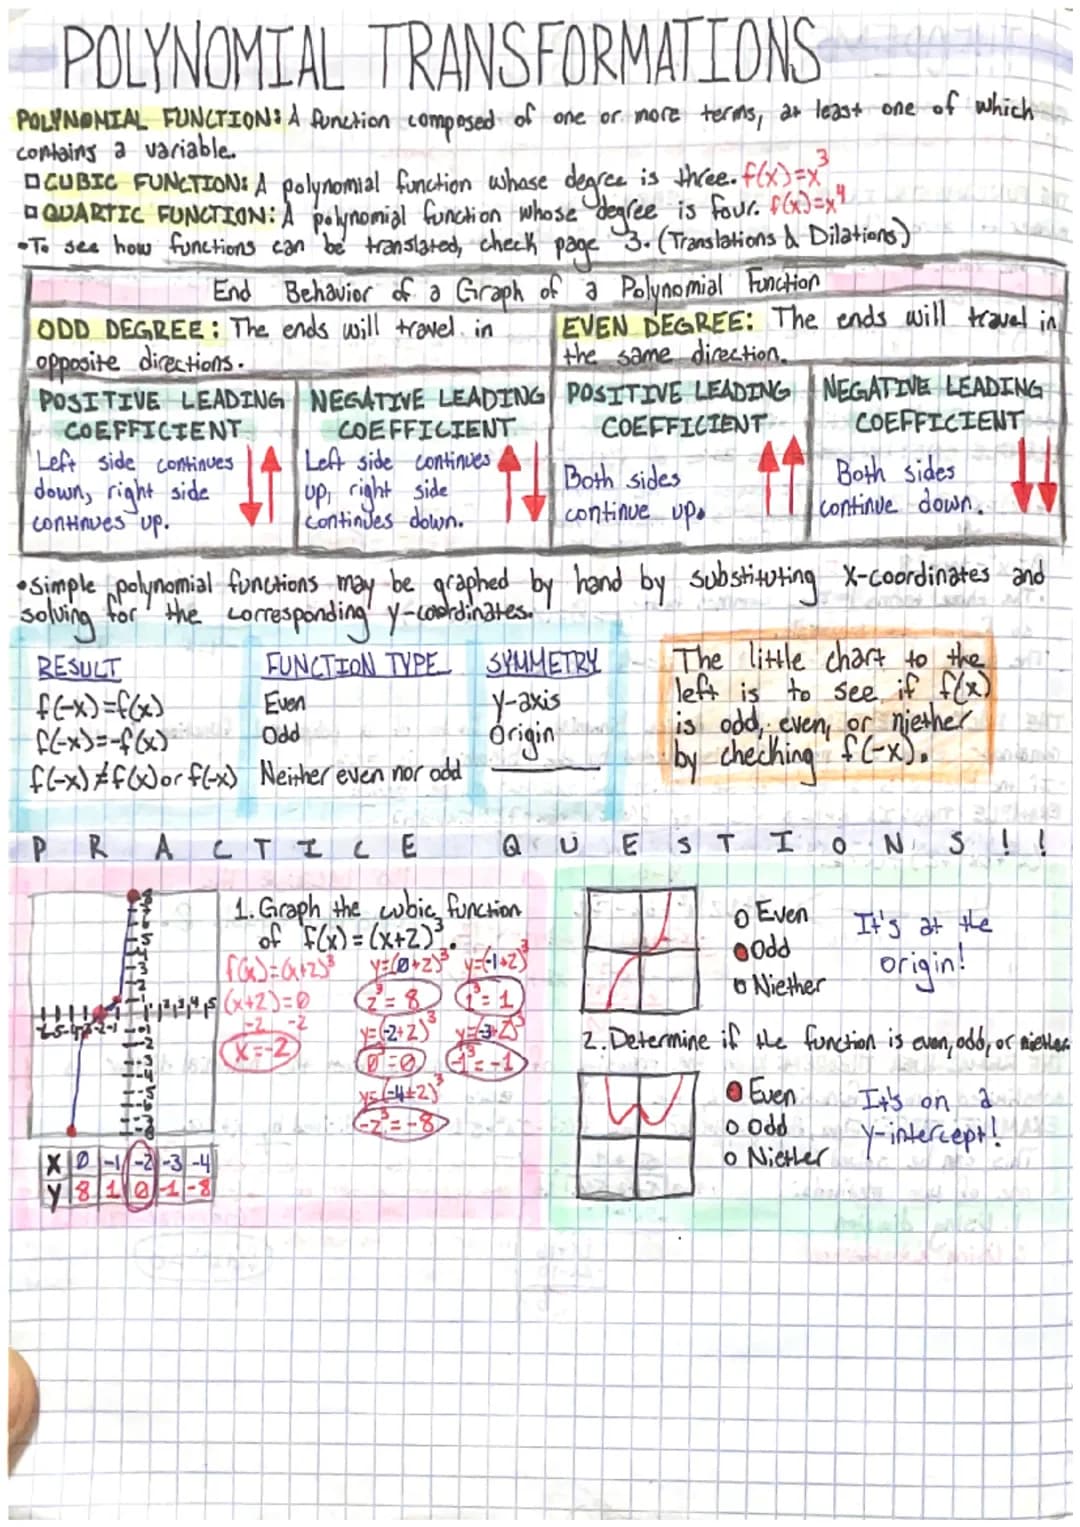 POLYNOMIAL TRANSFORMATIONS
POLYNOMIAL FUNCTION: A function composed of one or more terms, at least one of which
contains a variable.
CUBIC FUNCTION: A polynomial function whose degree is three. f(x)=x³
QUARTIC FUNCTION: A polynomial function whose degree is four. f(x)=x⁴
•To see how functions can be translated, check page 3. (Translations & Dilations)
End Behavior of a Graph of a Polynomial Function
ODD DEGREE: The ends will travel in
opposite directions.
EVEN DEGREE: The ends will travel in
the same direction.
POSITIVE LEADING
COEFFICIENT
Left side continues
down, right side
continues up.
NEGATIVE LEADING
COEFFICIENT
Left side continues
up, right side
continues down.
POSITIVE LEADING
COEFFICIENT
Both sides
continue up.
NEGATIVE LEADING
COEFFICIENT
Both sides
continue down.
•Simple polynomial functions may be graphed by hand by substituting X-coordinates and
solving for the corresponding y-coordinates.
RESULT FUNCTION TYPE SYMMETRY
f(-x)=f(x) Even y-axis
f(-x)=-f(x) Odd Origin
f(-x)≠f(x) or f(-x) Neither even nor odd
The little chart to the
left is to see if f(x)
is odd, even, or niether
by checking f(-x).
PRACTICE QUESTIONS!!
1. Graph the cubic function
of f(x)=(x+2)³.
f(x)=(x+2)³
(x+2)=0
-2 -2
x=-2
y=(0+2)³
2³=8
y=(-1+2)³
1³=1
y=(-2+2)³
0³=0
y=(-3+2)³
-1³=-1
y=(-4+2)³
-2³=-8
X 0 -1 -2 -3 -4
Y 8 1 0 -1 -8
Even
Odd
Niether
It's at the
origin!
2. Determine if the function is even, odd, or niether.
Even
Odd
Niether
It's on a
y-intercept!